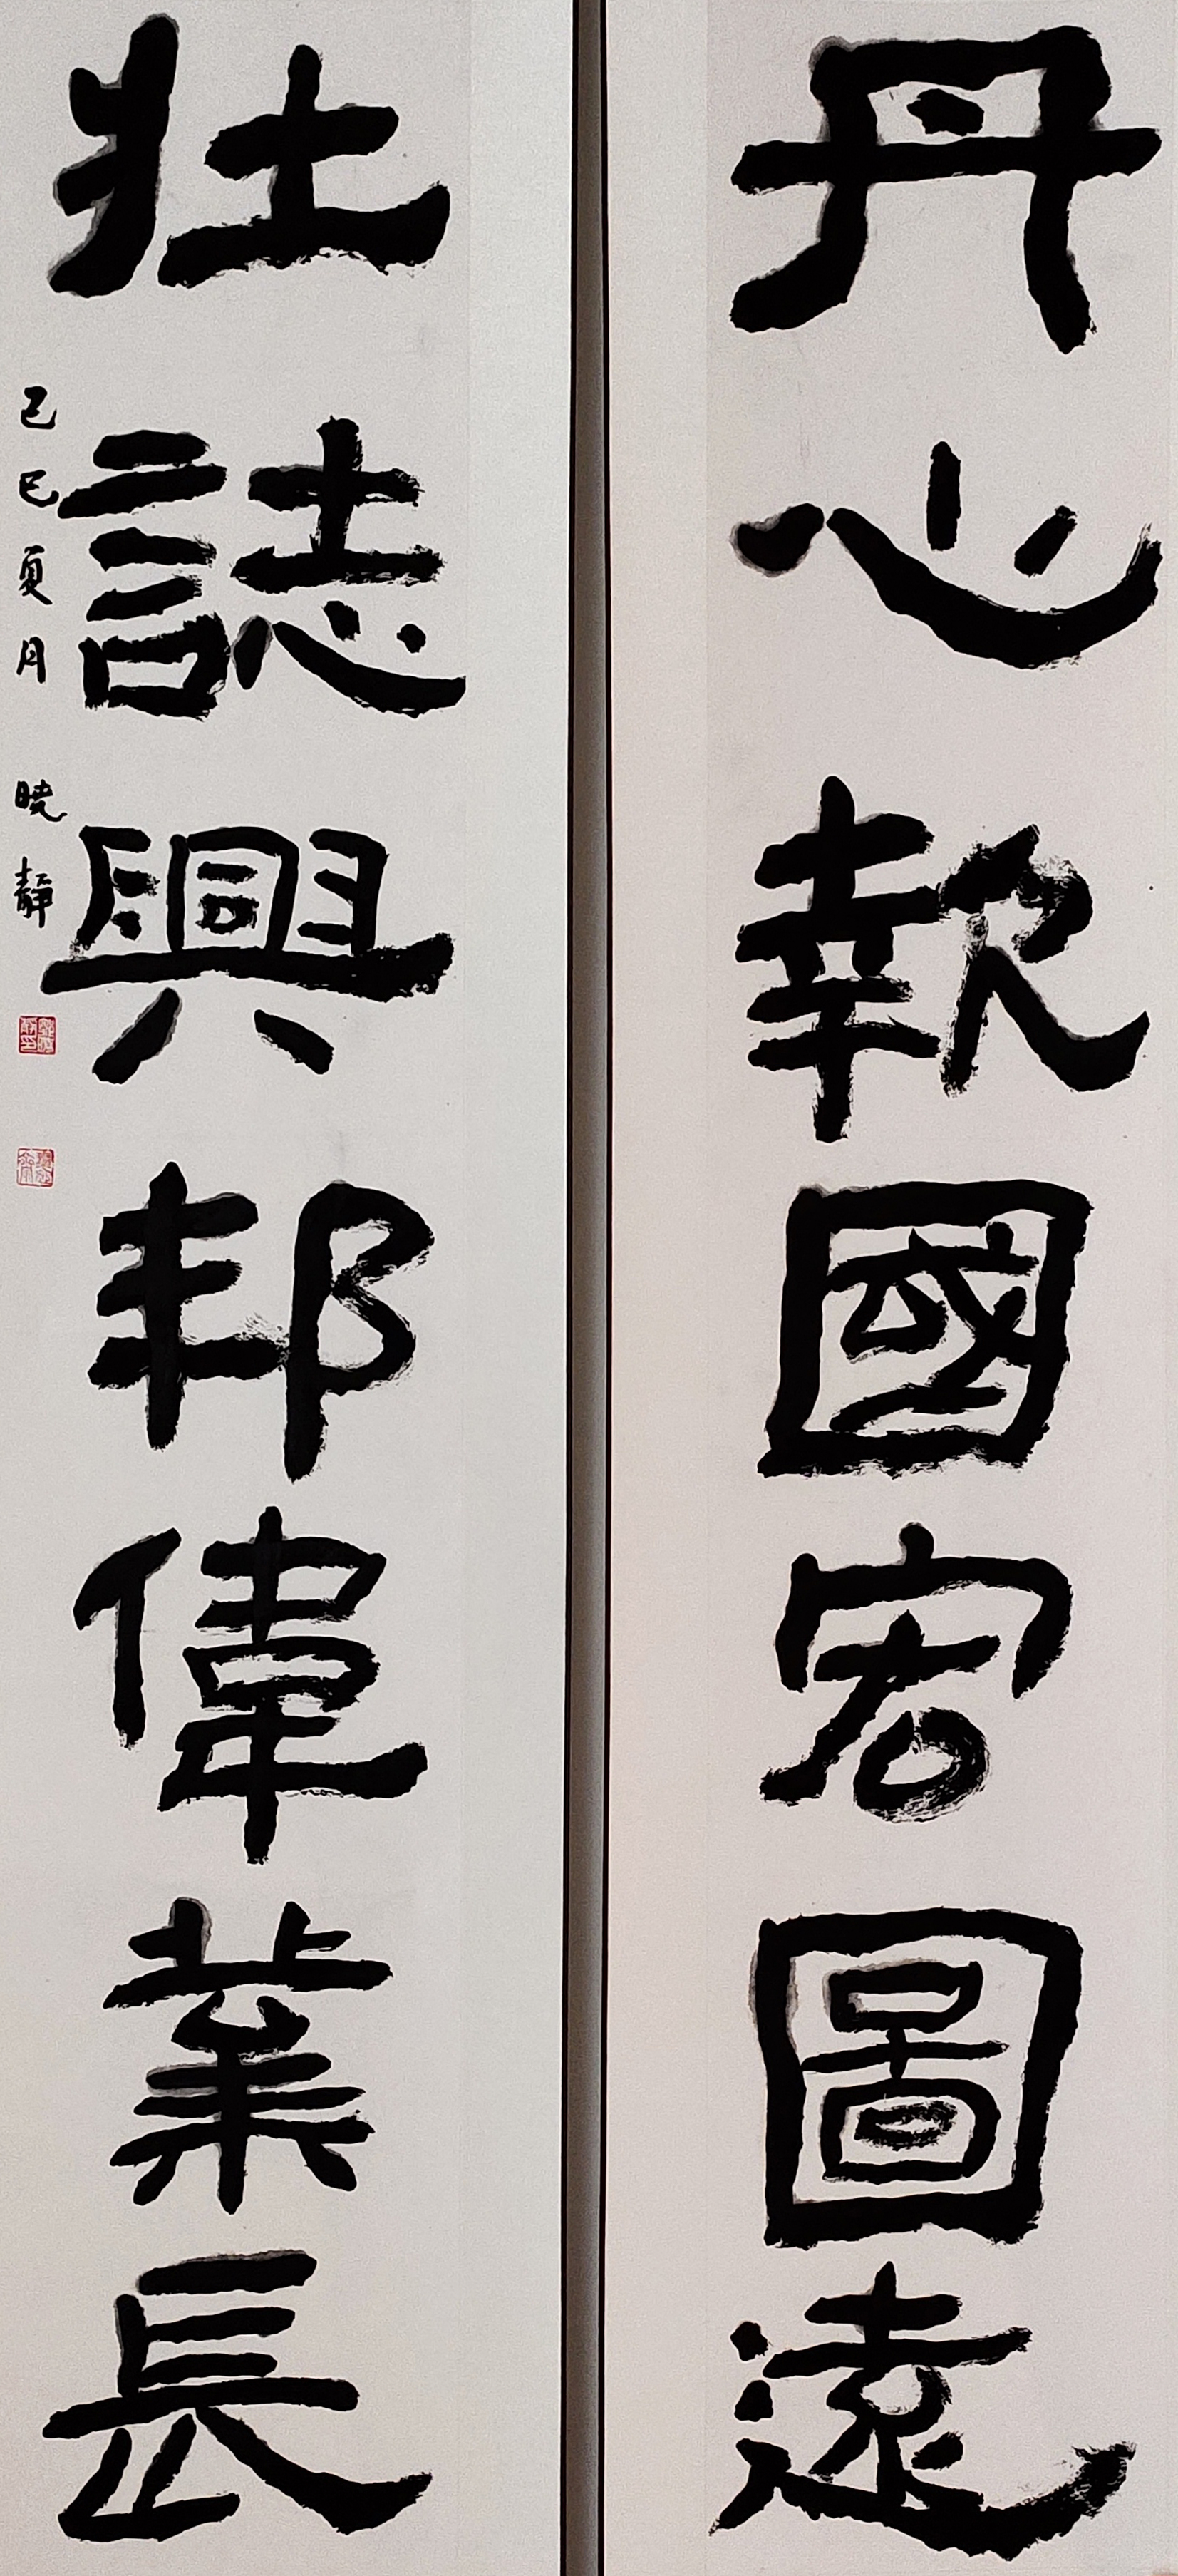 丹心報國宏圖遠
壯誌興邦偉業長
己巳夏月 曉靜